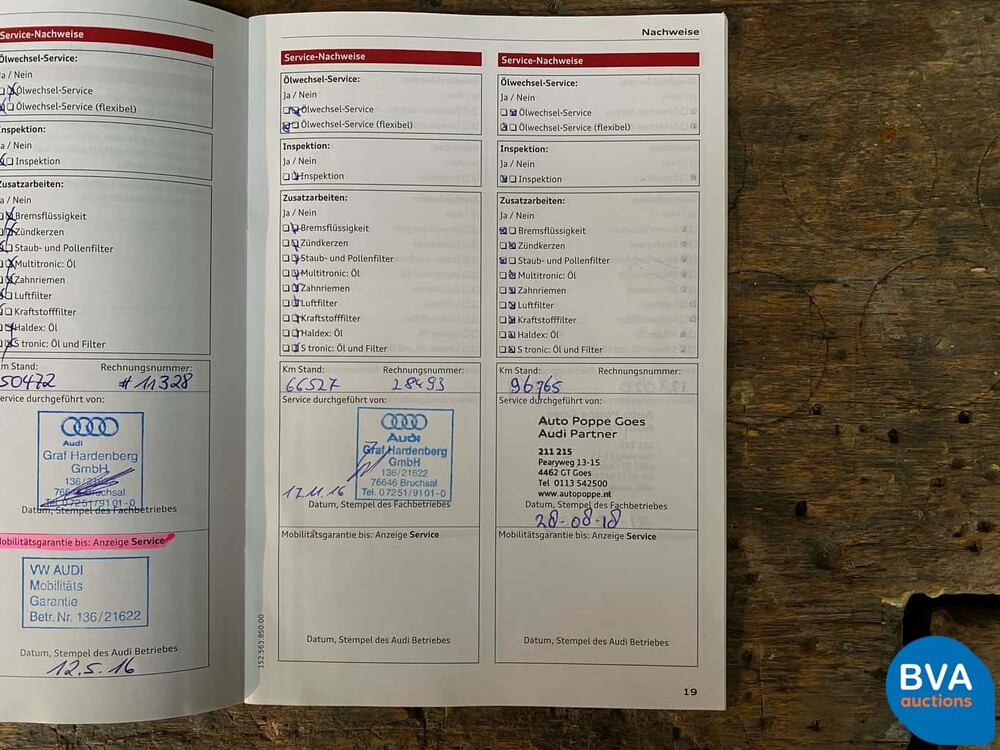 Service-Nachweise
Ölwechsel-Service:
Ja / Nein
Ölwechsel-Service
Ölwechsel-Service (flexibel)
Inspektion:
Ja / Nein
Inspektion
Zusatzarbeiten:
Ja / Nein
Bremsflüssigkeit
Zündkerzen
Staub- und Pollenfilter
Multitronic: Öl
Zahnriemen
Luftfilter
Kraftstofffilter
Haldex: Öl
S tronic: Öl und Filter
Km Stand: Rechnungsnummer:
50472 #11328
Service durchgeführt von:
Audi
Graf Hardenberg
GmbH
136/21622
76646 Bruchsal
Tel. 07251/9101-0
Datum, Stempel des Fachbetriebes
Mobilitätsgarantie bis: Anzeige Service
VW AUDI
Mobilitäts
Garantie
Betr. Nr. 136/21622
Datum, Stempel des Audi Betriebes
12.5.16
Nachweise
Service-Nachweise
Ölwechsel-Service:
Ja / Nein
Ölwechsel-Service
Ölwechsel-Service (flexibel)
Inspektion:
Ja / Nein
Inspektion
Zusatzarbeiten:
Ja / Nein
Bremsflüssigkeit
Zündkerzen
Staub- und Pollenfilter
Multitronic: Öl
Zahnriemen
Luftfilter
Kraftstofffilter
Haldex: Öl
S tronic: Öl und Filter
Km Stand: Rechnungsnummer:
66527 28493
Service durchgeführt von:
Audi
Graf Hardenberg
GmbH
136/21622
76646 Bruchsal
Tel. 07251/9101-0
17.11.16
Datum, Stempel des Fachbetriebes
Mobilitätsgarantie bis: Anzeige Service
Datum, Stempel des Audi Betriebes
152.563.850.00
Service-Nachweise
Ölwechsel-Service:
Ja / Nein
Ölwechsel-Service
Ölwechsel-Service (flexibel)
Inspektion:
Ja / Nein
Inspektion
Zusatzarbeiten:
Ja / Nein
Bremsflüssigkeit
Zündkerzen
Staub- und Pollenfilter
Multitronic: Öl
Zahnriemen
Luftfilter
Kraftstofffilter
Haldex: Öl
S tronic: Öl und Filter
Km Stand: Rechnungsnummer:
96765
Service durchgeführt von:
Auto Poppe Goes
Audi Partner
211 215
Pearyweg 13-15
4462 GT Goes
Tel 0113 542500
www.autopoppe.nl
Datum, Stempel des Fachbetriebes
28-08-18
Mobilitätsgarantie bis: Anzeige Service
Datum, Stempel des Audi Betriebes
19
BVA
auctions